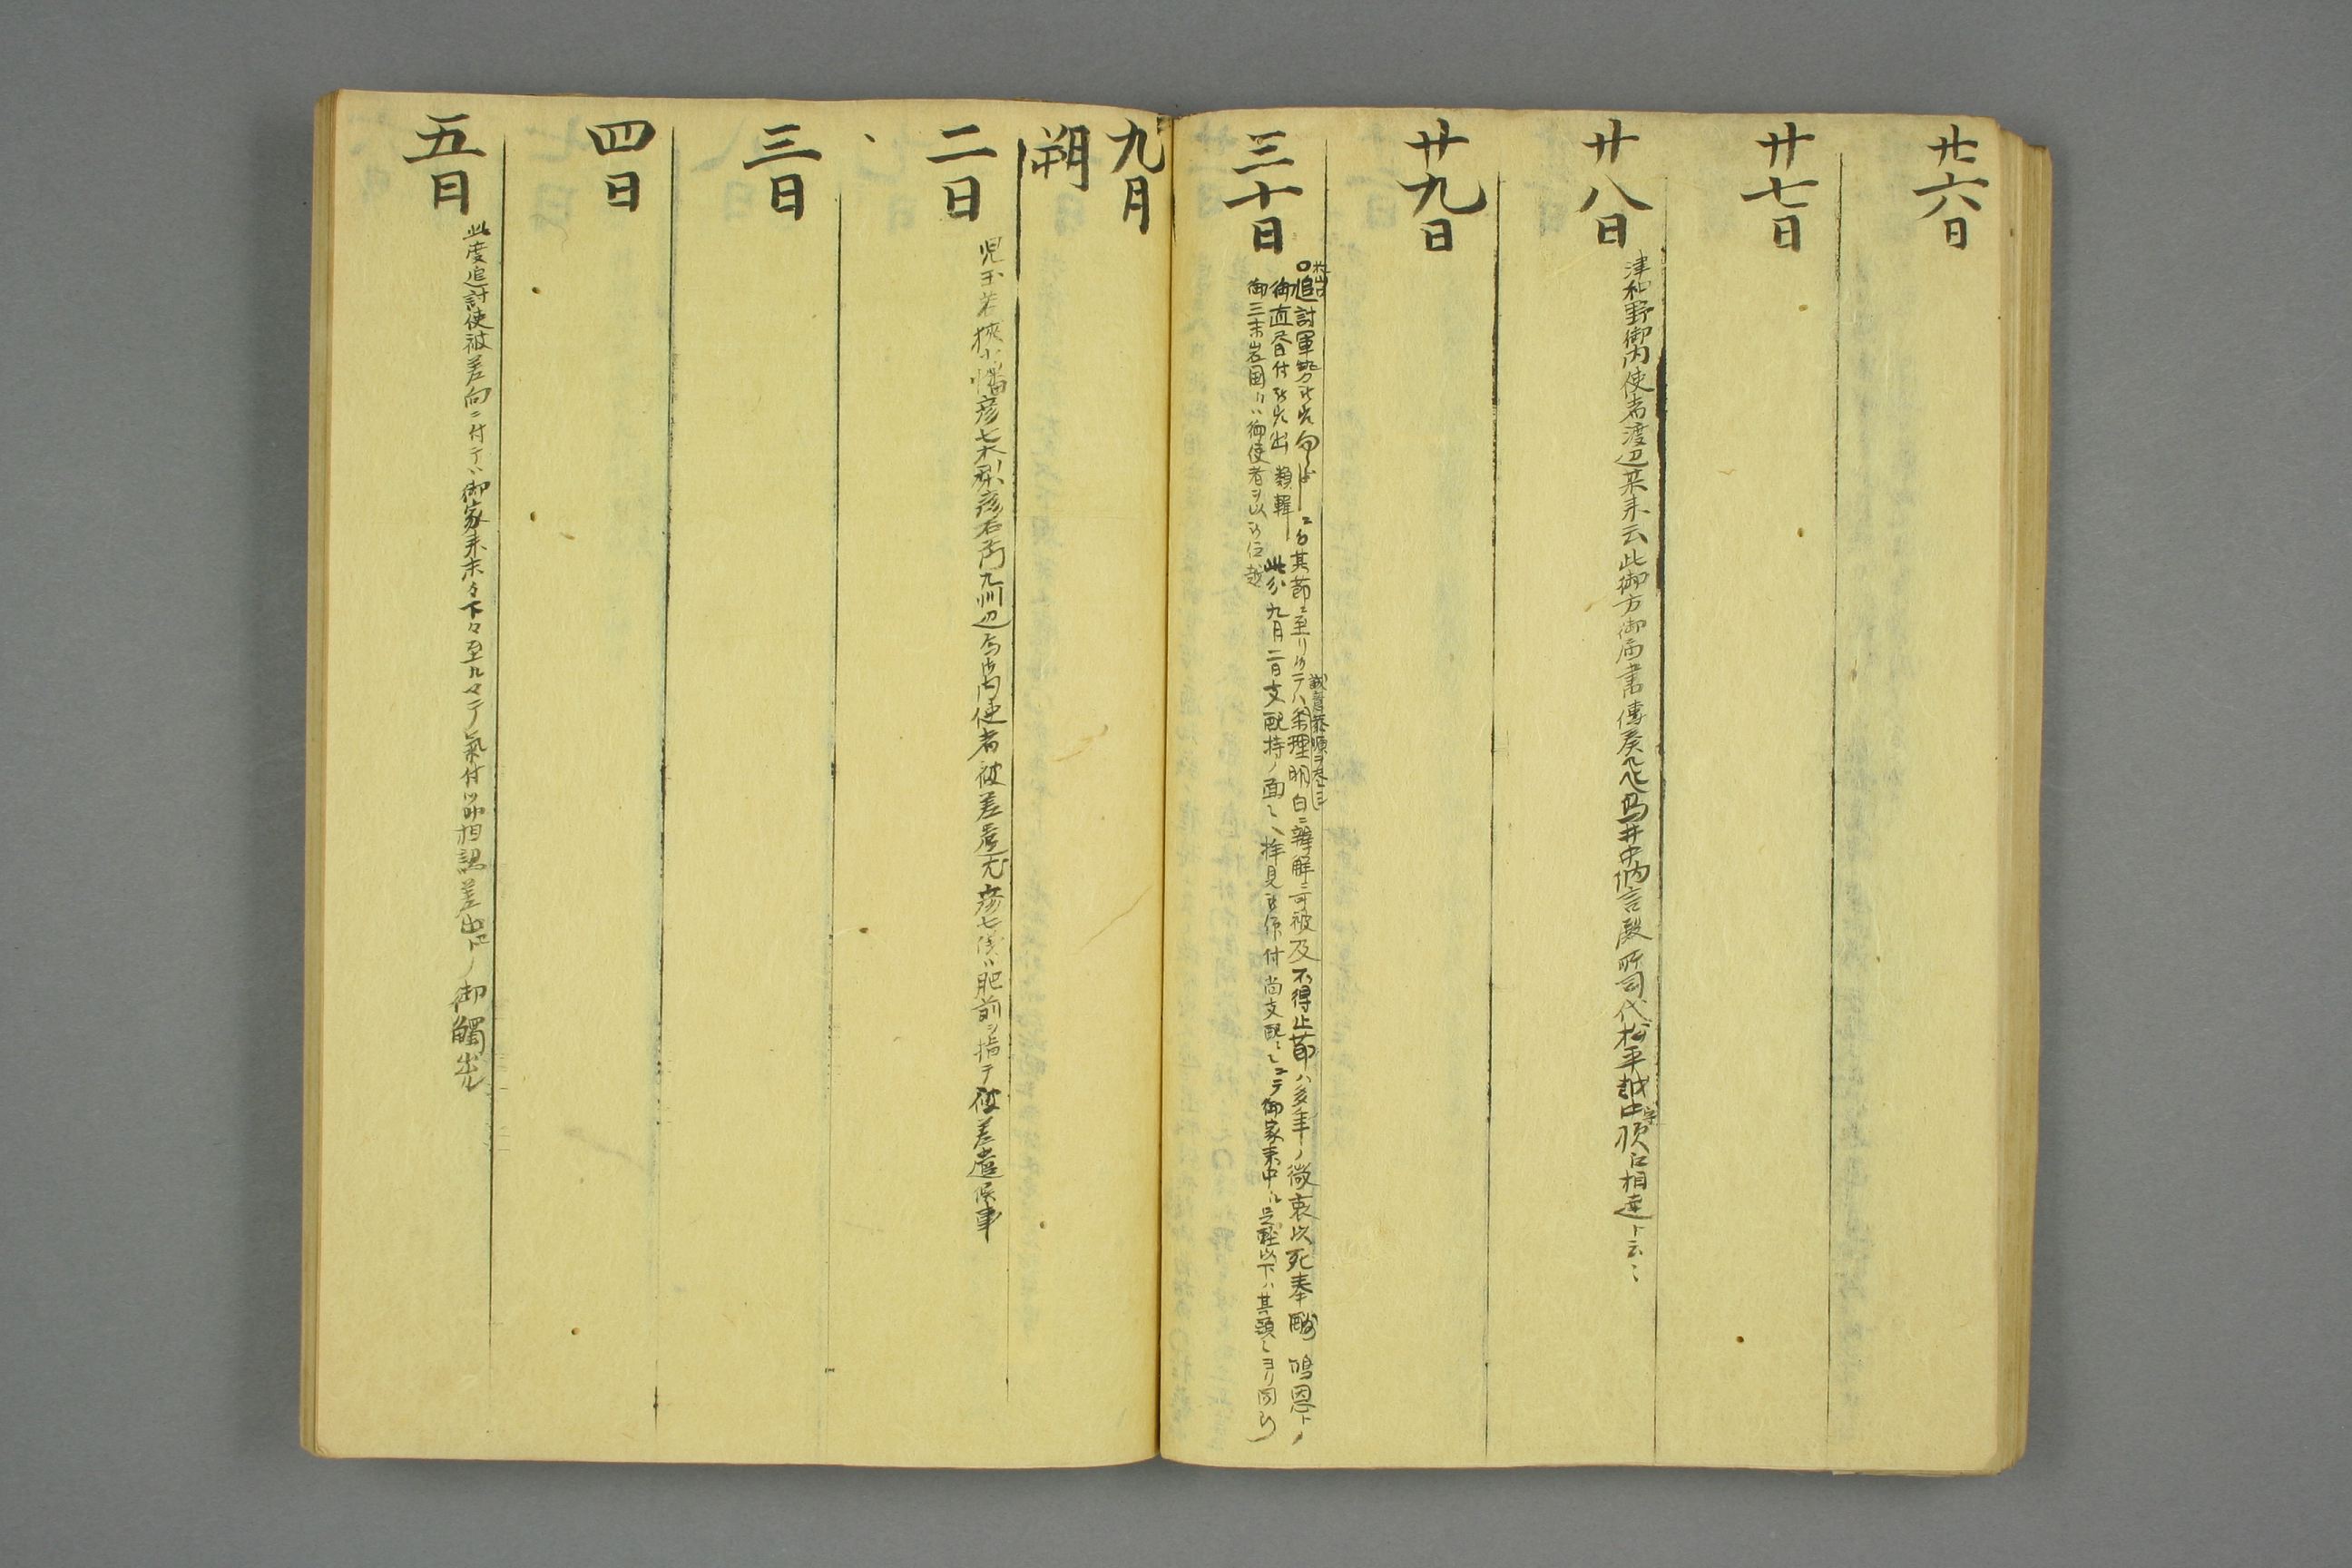 廿六日
廿七日
廿八日
津和野御内使者渡辺某来云此御方御届書傳奏飛鳥井中納言殿所司代松平越中守殿江相達ト云々
廿九日
三十日
追討軍勢被差向
其節ニ至リ候テハ条理明白ニ辨解ニ可被及不得止節ハ多年ノ微衷以死奉酬鴻恩トノ
誠意恭順ヲ尽シ
御直書付被差出 類輯 此分九月二日支配持ノ面々ハ拝見被仰付尚支配々々ニテ御家来中ハ足軽以下ハ其頭々ヨリ
御三末岩国ハ御使者ヲ以被仰越
九月
朔
二日
児玉若狭小幡彦七木梨彦右衛門九州辺為御内使者被差遣尤彦七儀ハ肥前ヲ指テ被差遣候事
三日
四日
五日
此度追討使被差向ニ付テハ御家来末々下々至ルマテノ氣付相認差出トノ御觸出ル